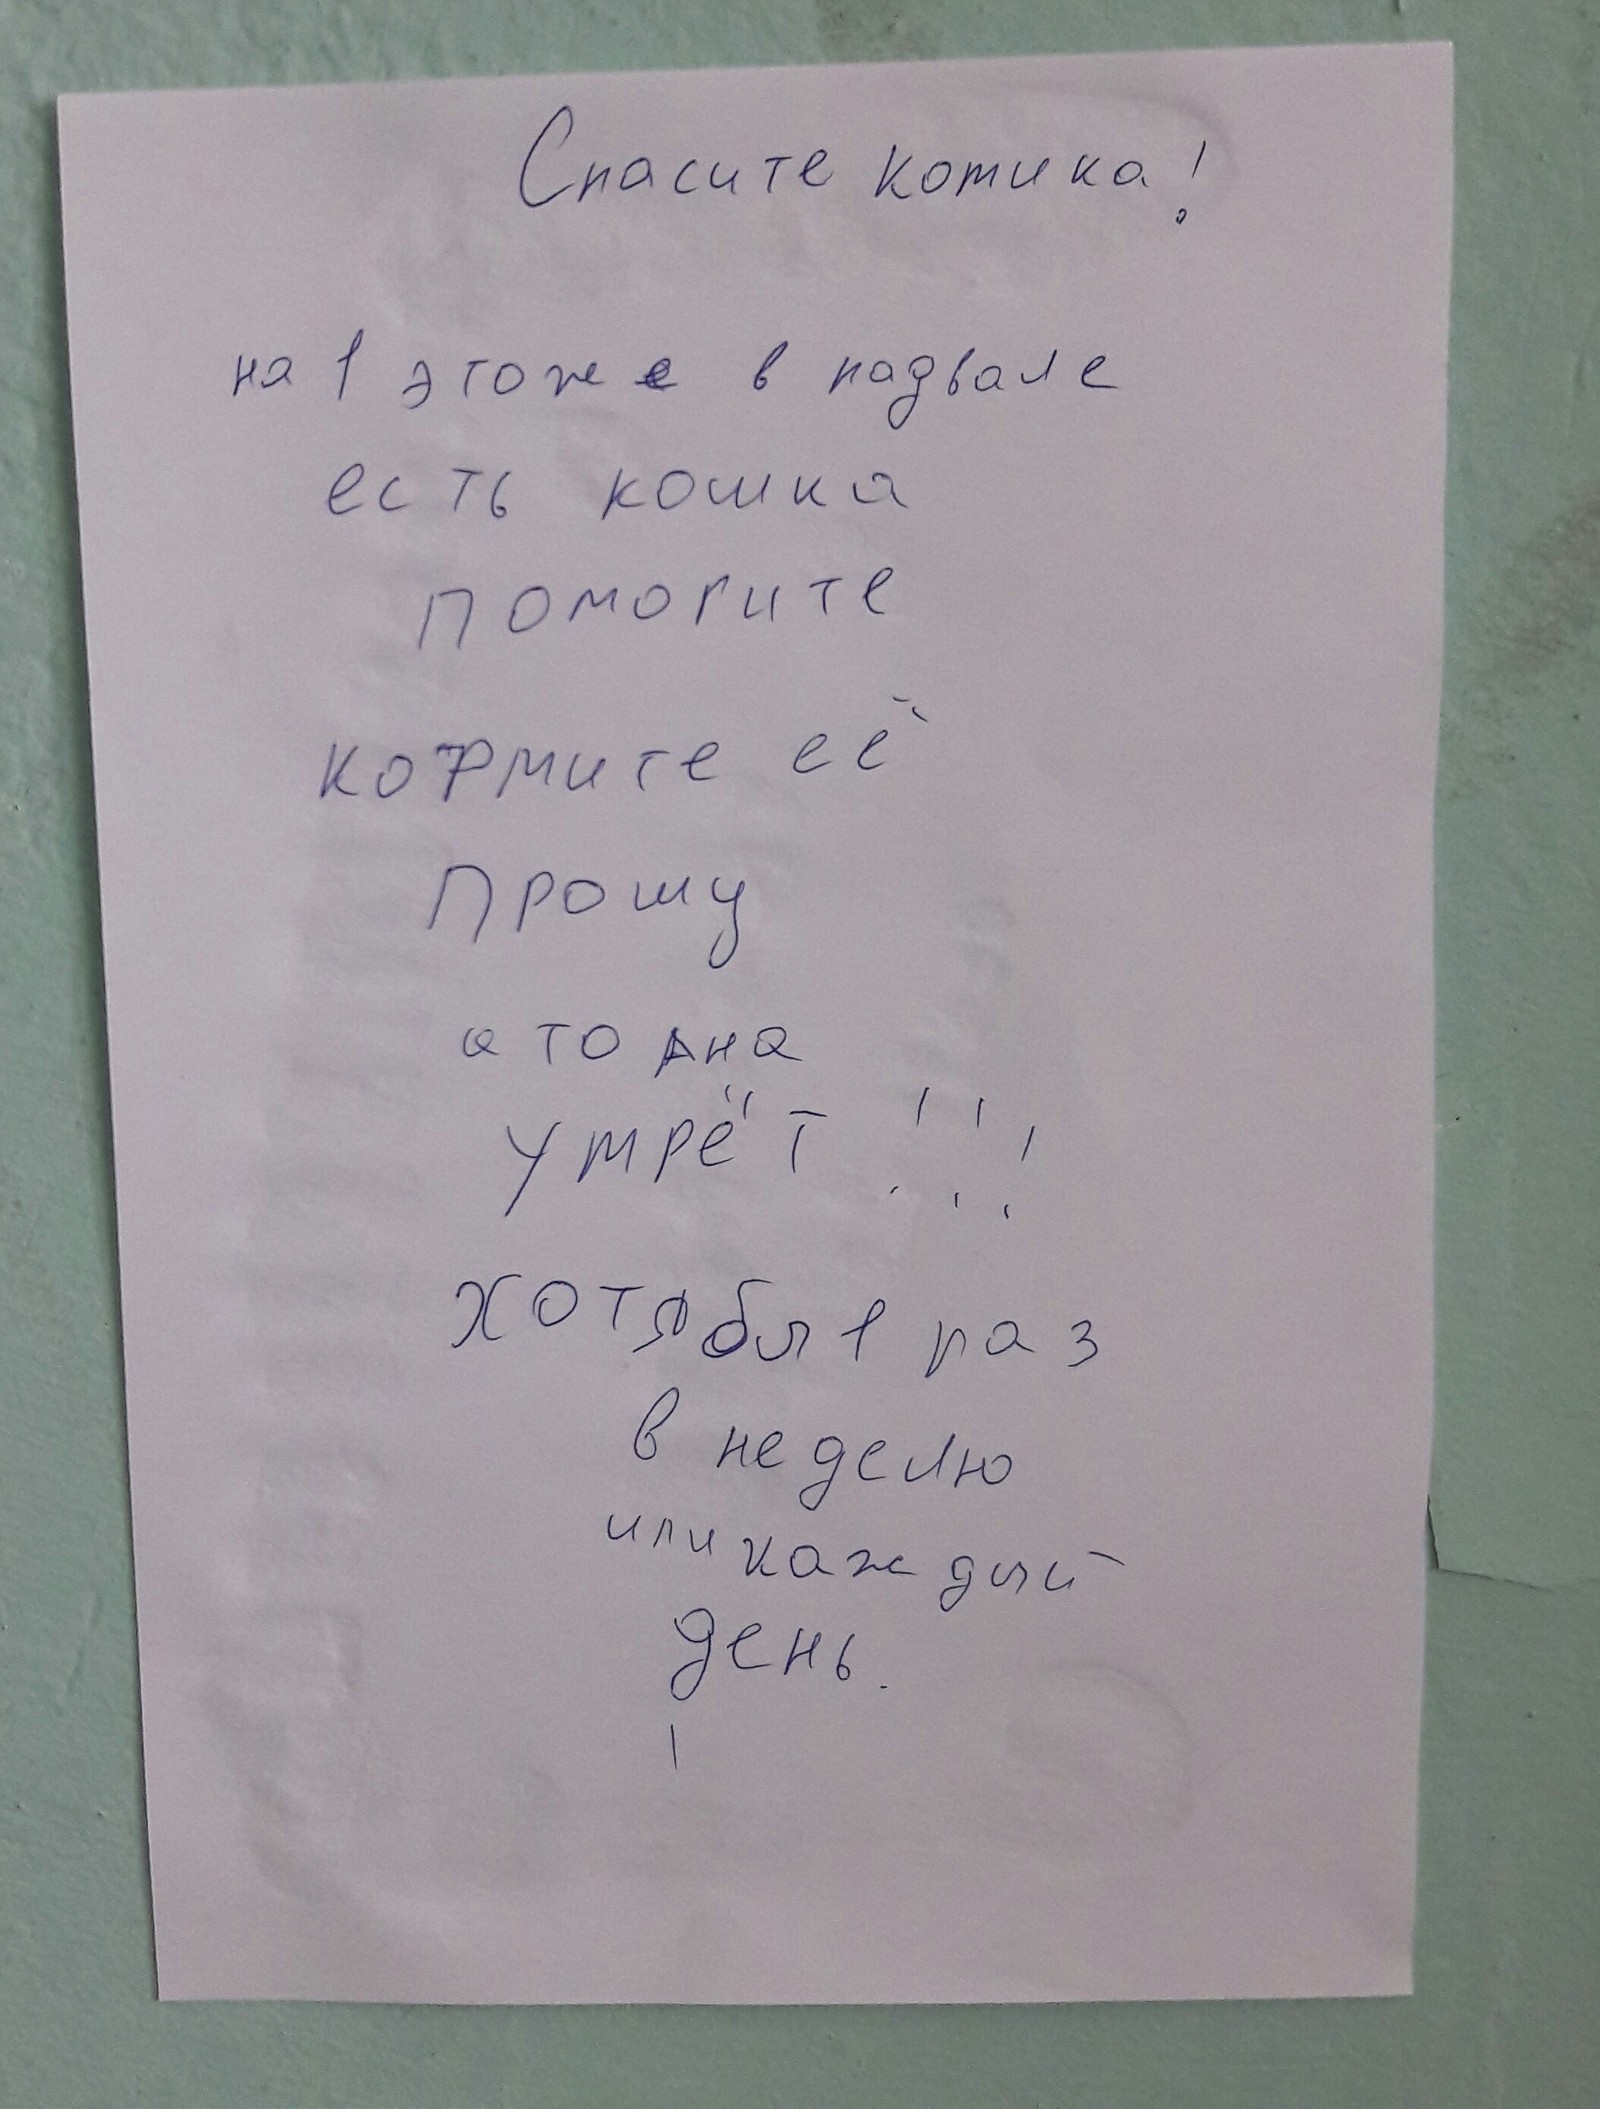 Спасите котика!
на 1 этоже в падвале
есть кошка
помогите
кормите её
Прошу
а то она
умрёт!!!
хотябы 1 раз
в неделю
или каждый
день.